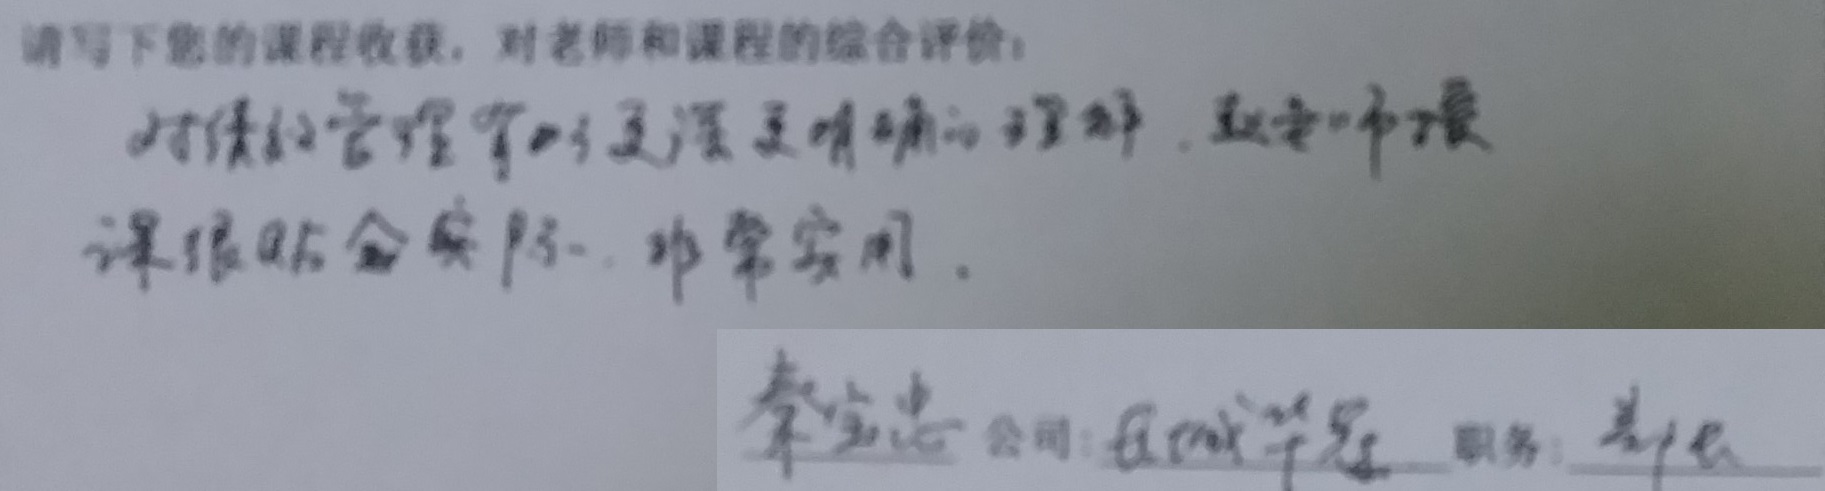 请写下您的课程收获，对老师和课程的综合评价：
对绩效管理有了更深更明确的理解．赵老师授
课很贴合实际．非常实用．
秦宝忠 公司： 华冠 职务： 部长